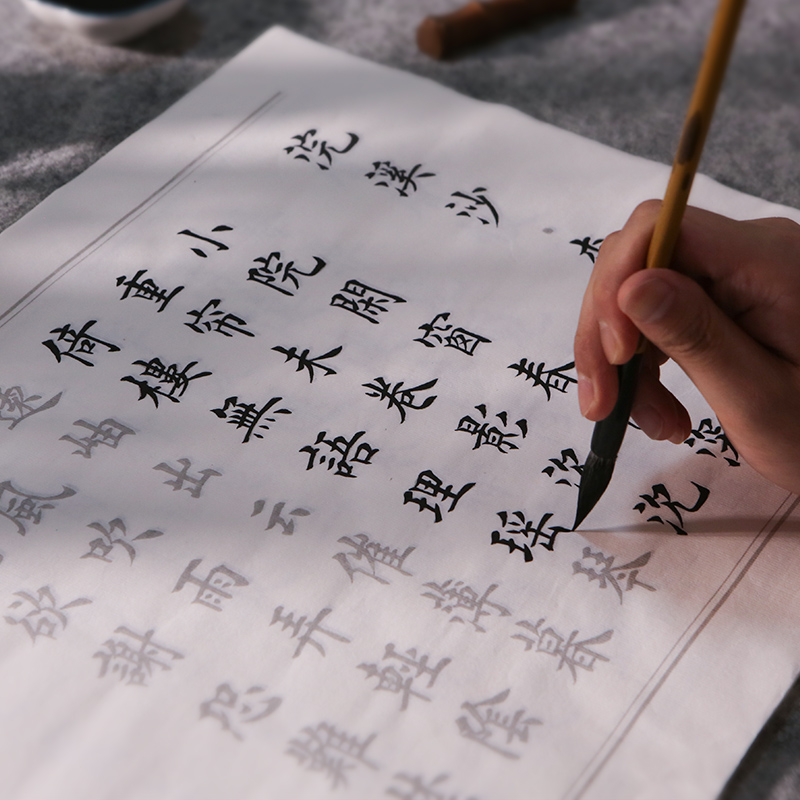 浣溪沙
小院閑窗春深
重帘未卷影沉沉
倚樓無語理瑶琴
遠岫出云催薄暮
風吹雨弄輕陰
欲謝恐難